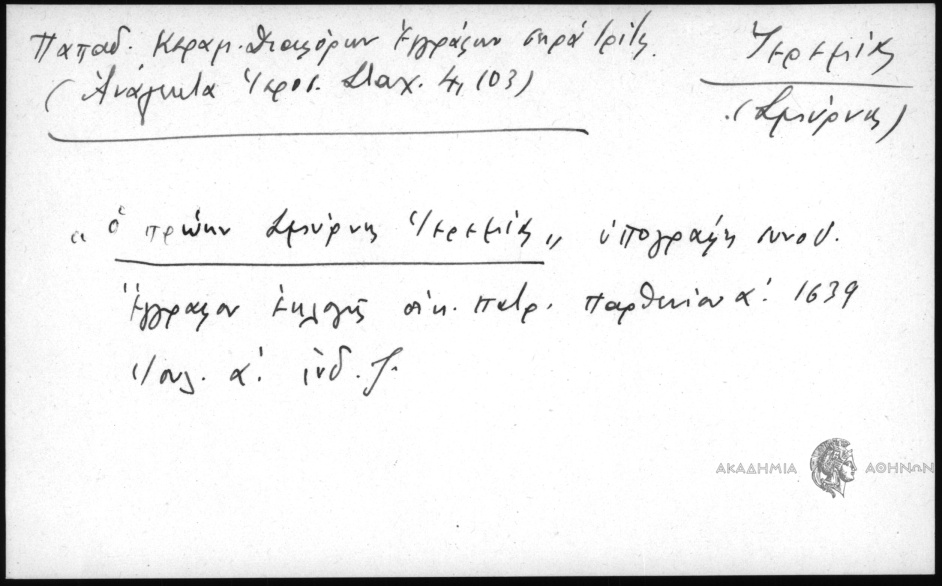 Παπαδ. Κεραμ. Διαφόρων Ἐγγράφων σειρὰ τρίτ.
(Ἀνάλεκτα Ἱεροσ. Σταχ. 4, 103)
Ἱερεμίας
(Σμύρνης)
"ὁ πρώην Σμύρνης Ἱερεμίας" ὑπογράφει συνοδ.
Ἔγγραφον ἐκλογῆς οἰκ. πατρ. Παρθενίου α΄. 1639
Ἰουλ. α΄. ἰνδ. ζ.
ΑΚΑΔΗΜΙΑ ΑΘΗΝΩΝ